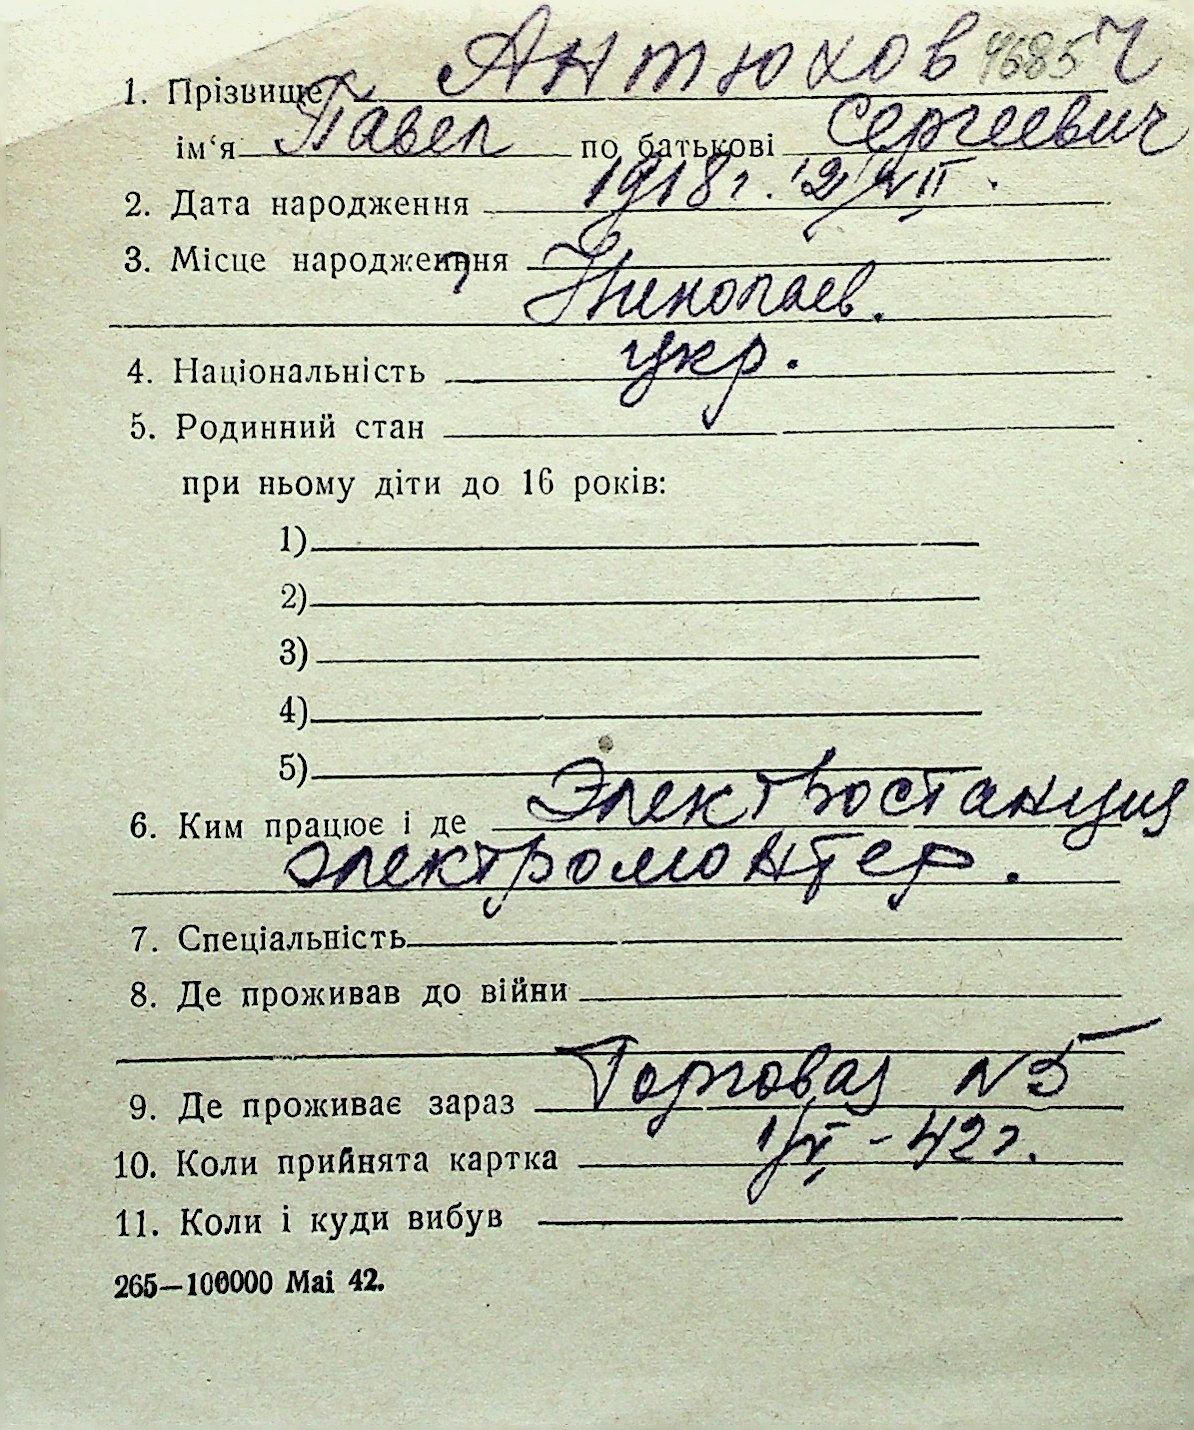 1. Прізвище Антюхов 4685 Ч
ім‘я Павел по батькові Сергеевич
2. Дата народження 1918 г.
3. Місце народження
Николаев.
4. Національність укр.
5. Родинний стан
при ньому діти до 16 років:
1)
2)
3)
4)
5)
6. Ким працює і де Электростанция
электромонтер.
7. Спеціальність
8. Де проживав до війни
9. Де проживає зараз Торговая N 5
10. Коли прийнята картка - 42 г.
11. Коли і куди вибув
265—100000 Mai 42.